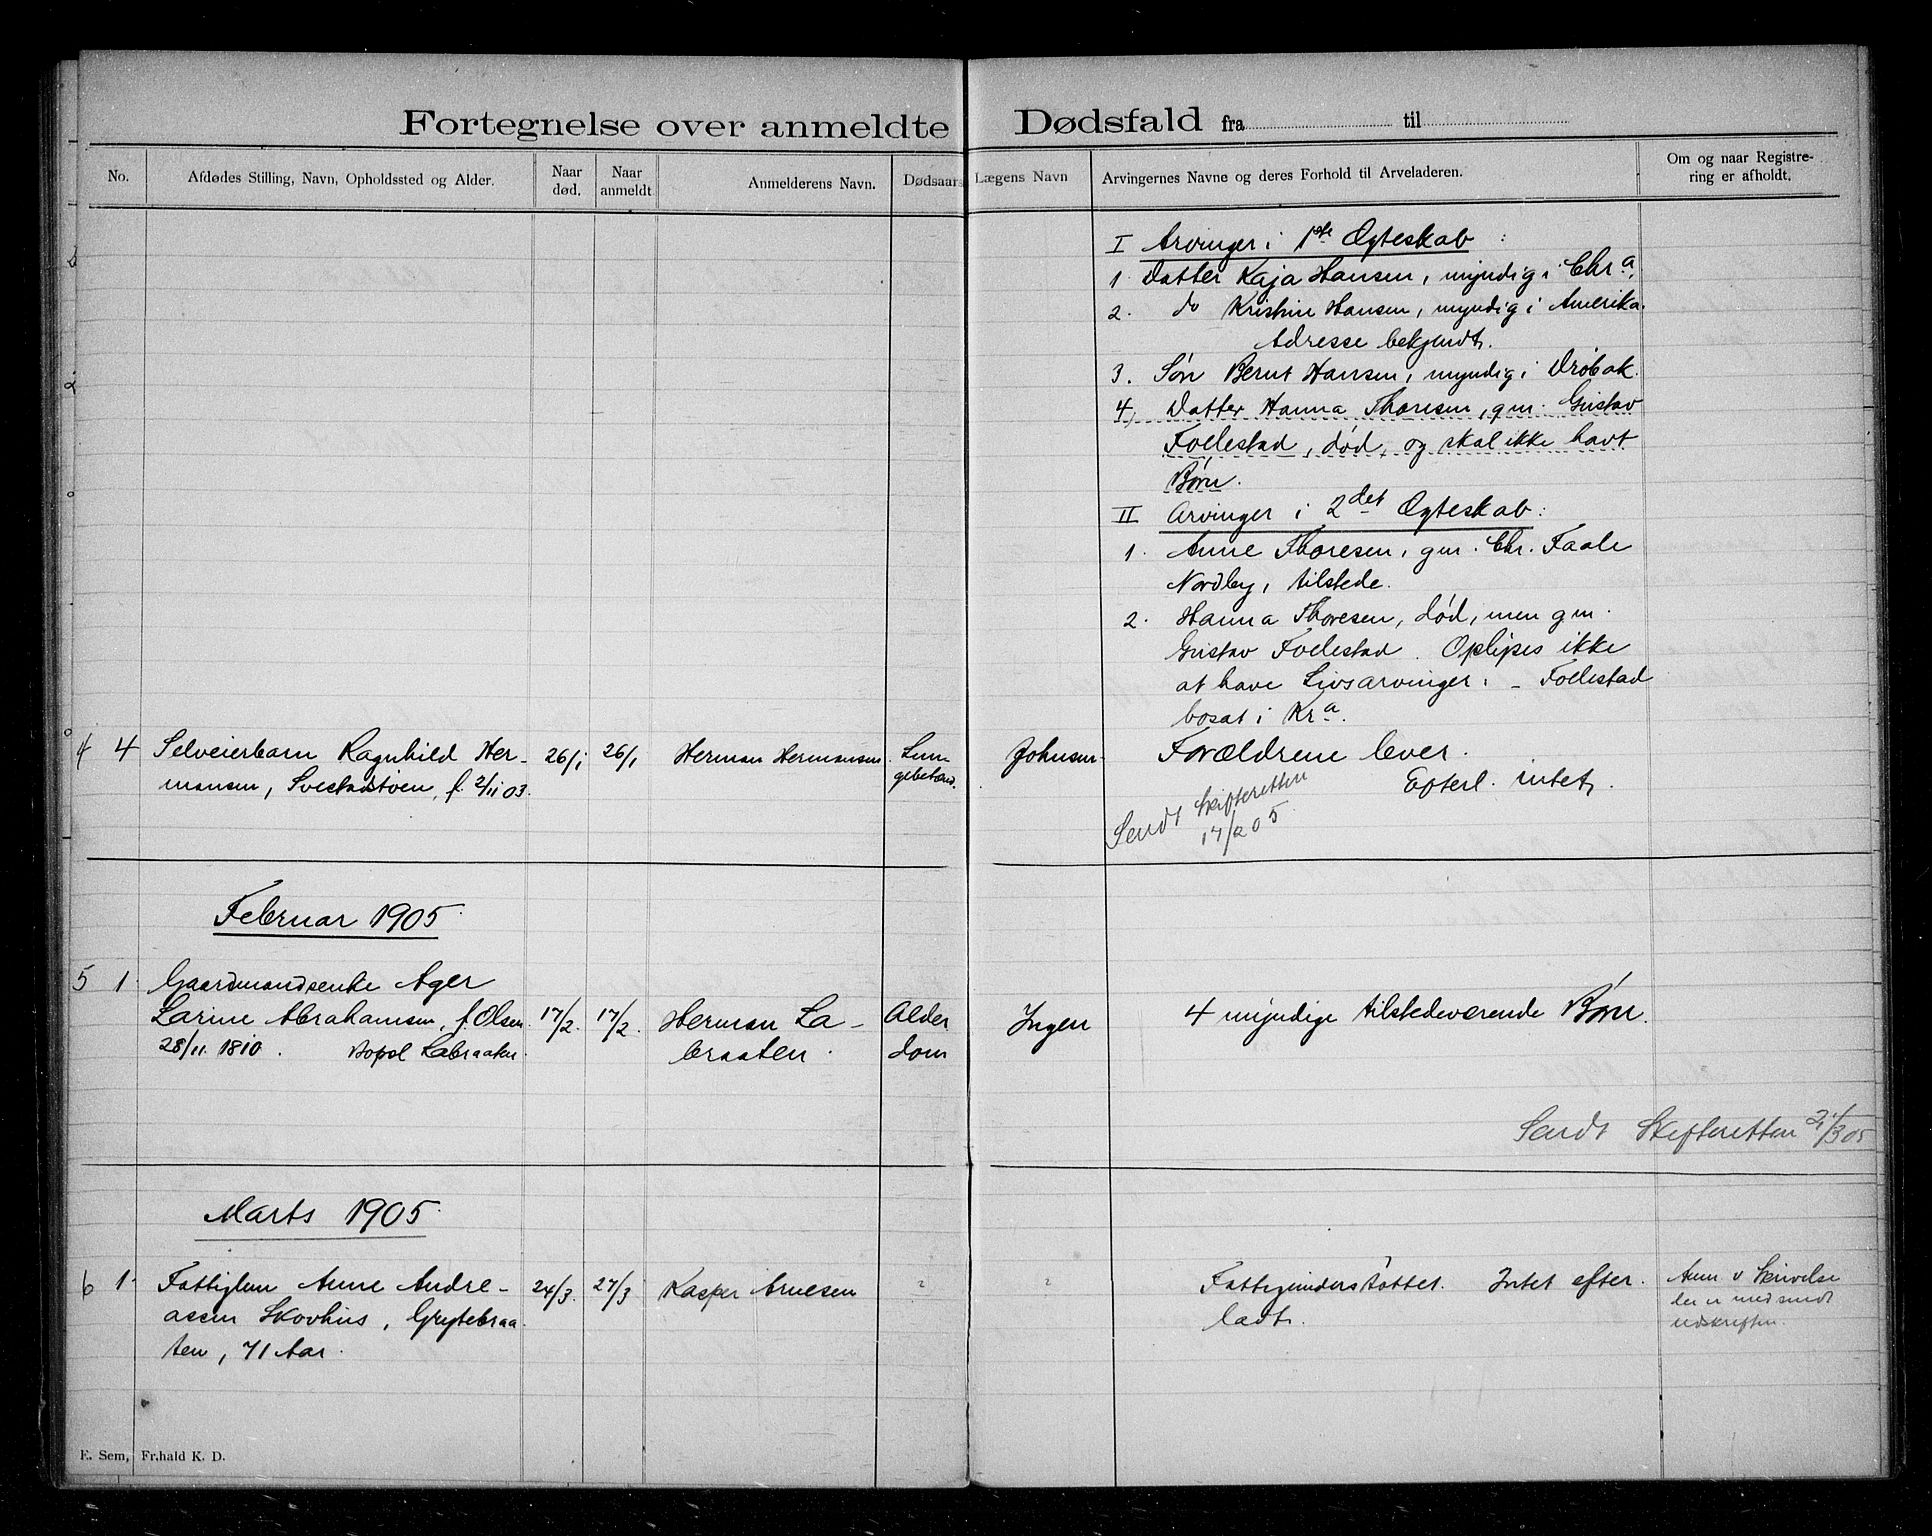 Fortegnelse over anmeldte Dødsfald fra til
No.
Afdødes Stilling, Navn, Opholdssted og Alder.
Naar død.
Naar anmeldt
Anmelderens Navn.
Dødsaars
Lægens Navn
Arvingernes Navne og deres Forhold til Arveladeren.
Om og naar Registre-
ring er afholdt.
I Arvinger i 1ste Ægteskab :
1. Datter Kaja Hansen, myndig i Chr a.
2. do Kristine Hansen, myndig i Amerika.
Adresse bekjendt.
3. Søn Bernt Hansen, myndig i Drøbak.
4, Datter Hanna Thoresen, gm. Gustav
Follestad, død, og skal ikke havt
Børn.
II Arvinger i 2det Ægteskab :
1. Anne Thoresen, gm. Chr. Faale
Nordby, tilstede.
2. Hanna Thoresen, død, men gm.
Gustav Follestad. Oplyses ikke
at have Livsarvinger. – Follestad
bosat i Kr a.
4 4 Selveierbarn Ragnhild Her-
mansen, Svestadtoen, f. 2/11 03.
26/1 26/1 Herman Hermansen
Lun-
gebetænd.
Johnsen
Forældrene lever.
Efterl. intet.
Sendt Skifteretten
17/2 05
Februar 1905
5 1. Gaardmandsenke Ager
Larine Abrahamsen, f. Olsen
28/11 1810. Bopæl Labraaten.
17/2. 17/2. Herman La-
braaten.
Alder
dom
Ingen
4 myndige tilstedeværende Børn.
Sendt Skifteretten 21/3 05
Marts 1905
6 1. Fattiglem Anne Andre-
assen Skovhus, Grytebraa-
ten, 71 Aar.
24/3. 27/3 Kasper Arnesen
?
?
Fattigunderstøttet. Intet efter.
ladt.
Anm v Skrivelse
der er medsendt
udskriften.
E. Sem, Fr.hald K. D.